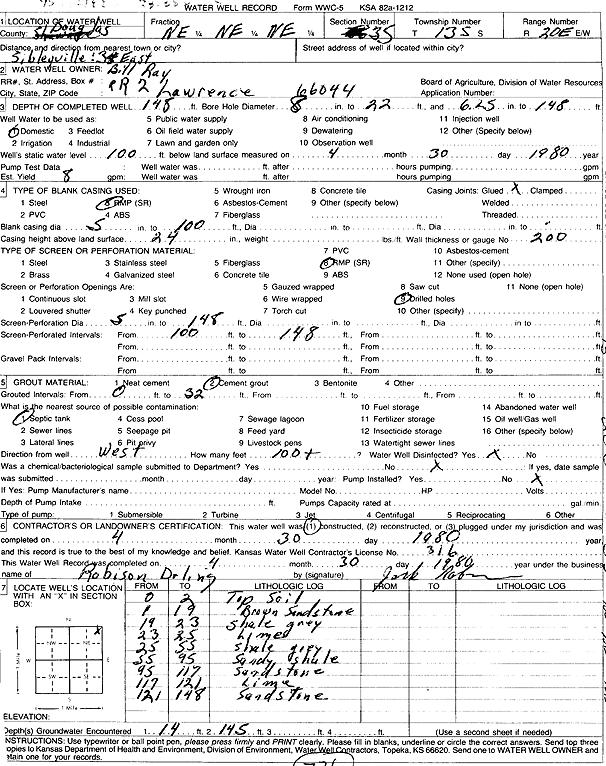 WATER WELL RECORD Form WWC-5 KSA 82a-1212
1 LOCATION OF WATER WELL Fraction Section Number Township Number Range Number
County: Douglas NE ¼ NE ¼ NE ¼ 35 T 13S S R 20E E/W
Distance and direction from nearest town or city? Street address of well if located within city?
Sibleyville: 3 East
2 WATER WELL OWNER: Bill Ray
RR#, St. Address, Box # : RR 2 Board of Agriculture, Division of Water Resources
City, State, ZIP Code Lawrence 66044 Application Number:
3 DEPTH OF COMPLETED WELL 148 ft. Bore Hole Diameter 8 in. to 22 ft., and 6.25 in. to 148 ft.
Well Water to be used as: 5 Public water supply 8 Air conditioning 11 Injection well
1 Domestic 3 Feedlot 6 Oil field water supply 9 Dewatering 12 Other (Specify below)
2 Irrigation 4 Industrial 7 Lawn and garden only 10 Observation well
Well's static water level 100 ft. below land surface measured on 4 month 30 day 1980 year
Pump Test Data : Well water was ft. after hours pumping gpm
Est. Yield 8 gpm: Well water was ft. after hours pumping gpm
4 TYPE OF BLANK CASING USED: 5 Wrought iron 8 Concrete tile Casing Joints: Glued X Clamped
1 Steel 3 RMP (SR) 6 Asbestos-Cement 9 Other (specify below) Welded
2 PVC 4 ABS 7 Fiberglass Threaded
Blank casing dia 5 in. to 100 ft., Dia in. to ft., Dia in. to ft.
Casing height above land surface 24 in., weight lbs./ft. Wall thickness or gauge No 200
TYPE OF SCREEN OR PERFORATION MATERIAL: 7 PVC 10 Asbestos-cement
1 Steel 3 Stainless steel 5 Fiberglass 8 RMP (SR) 11 Other (specify)
2 Brass 4 Galvanized steel 6 Concrete tile 9 ABS 12 None used (open hole)
Screen or Perforation Openings Are: 5 Gauzed wrapped 8 Saw cut 11 None (open hole)
1 Continuous slot 3 Mill slot 6 Wire wrapped 9 Drilled holes
2 Louvered shutter 4 Key punched 7 Torch cut 10 Other (specify)
Screen-Perforation Dia 5 in. to 148 ft., Dia in. to ft., Dia in. to ft.
Screen-Perforated Intervals: From 100 ft. to 148 ft., From ft. to ft.
From ft. to ft., From ft. to ft.
Gravel Pack Intervals: From ft. to ft., From ft. to ft.
From ft. to ft., From ft. to ft.
5 GROUT MATERIAL: 1 Neat cement 2 Cement grout 3 Bentonite 4 Other
Grouted Intervals: From 0 ft. to 32 ft., From ft. to ft., From ft. to ft.
What is the nearest source of possible contamination: 10 Fuel storage 14 Abandoned water well
1 Septic tank 4 Cess pool 7 Sewage lagoon 11 Fertilizer storage 15 Oil well/Gas well
2 Sewer lines 5 Seepage pit 8 Feed yard 12 Insecticide storage 16 Other (specify below)
3 Lateral lines 6 Pit privy 9 Livestock pens 13 Watertight sewer lines
Direction from well West How many feet 100+ ? Water Well Disinfected? Yes X No
Was a chemical/bacteriological sample submitted to Department? Yes No X If yes, date sample
was submitted month day year: Pump Installed? Yes X No
If Yes: Pump Manufacturer's name Model No. HP Volts
Depth of Pump Intake ft. Pumps Capacity rated at gal./min.
Type of pump: 1 Submersible 2 Turbine 3 Jet 4 Centrifugal 5 Reciprocating 6 Other
6 CONTRACTOR'S OR LANDOWNER'S CERTIFICATION: This water well was (1) constructed, (2) reconstructed, or (3) plugged under my jurisdiction and was
completed on 4 month 30 day 1980 year
and this record is true to the best of my knowledge and belief. Kansas Water Well Contractor's License No. 316
This Water Well Record was completed on 4 month 30 day 1980 year under the business
name of Robison Drling by (signature) Jack
7 LOCATE WELL'S LOCATION WITH AN "X" IN SECTION BOX:
FROM TO LITHOLOGIC LOG FROM TO LITHOLOGIC LOG
0 2 Top Soil
19 Brown Sandstone
19 23 Shale grey
23 25 Limes
25 55 Shale grey
55 95 Sandy Shale
95 117 Sandstone
117 121 Lime
121 148 Sandstone
N
X
NW NE
W E
SW SE
S
1 Mile
1 Mile
ELEVATION:
Depth(s) Groundwater Encountered 1 14 ft. 2 145 ft. 3 ft. 4 ft. (Use a second sheet if needed)
INSTRUCTIONS: Use typewriter or ball point pen, please press firmly and PRINT clearly. Please fill in blanks, underline or circle the correct answers. Send top three
copies to Kansas Department of Health and Environment, Division of Environment, Water Well Contractors, Topeka, KS 66620. Send one to WATER WELL OWNER and
retain one for your records.